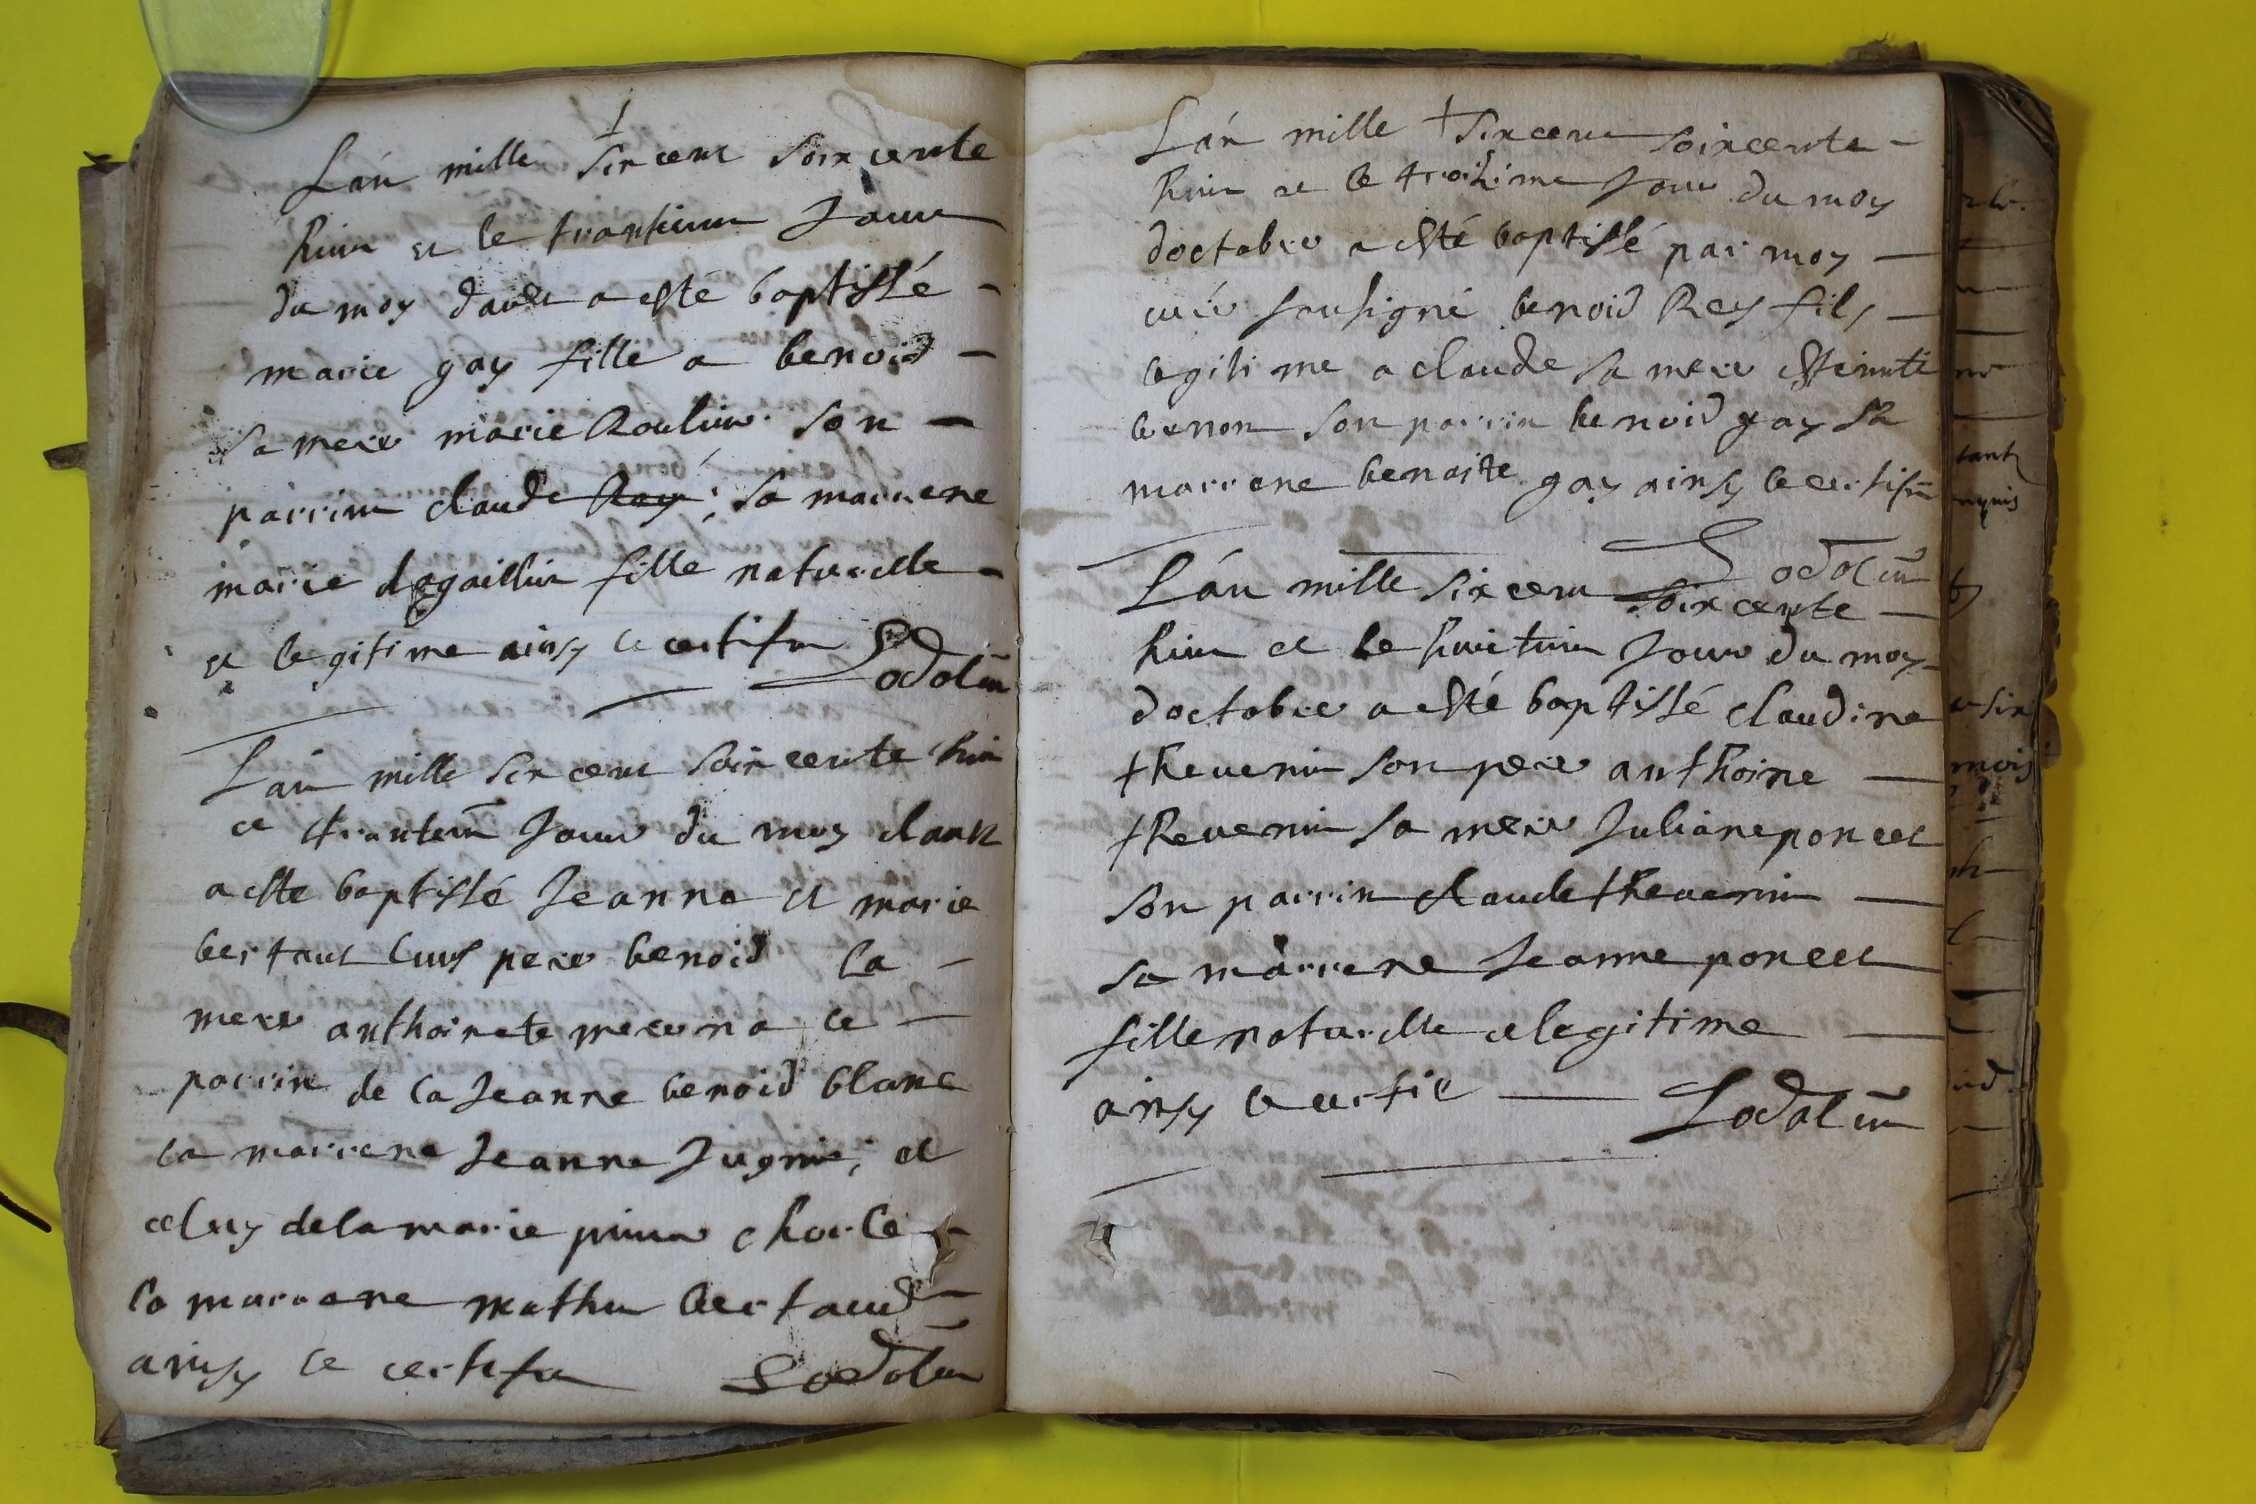 Lan mille sixcent soixcente
huit et le trantieme Jour
du moy daout a esté baptissé
marie gay fille a benoid
sa mere marie Roulin son
parrin claude Ray sa marrene
marie fille naturelle
et legitime ainsy le certifie
Lodolin
Lan mille sixcent soixcente huit
et trantem Jour du moy daout
a este baptissé Jeanne et marie
bertaut leurs pere benoid la
mere anthoinete le
parrin de la Jeanne benoid blanc
la marrene Jeanne et
celuy de la marie
la marrene bertaud
ainsy le certifie Lodolin
Lan mille sixcent soixcente
huit et le troisime Jour du moy
doctobre a esté baptissé par moy
curé sousigné benoid Rey fils
legitime a claude sa mere
son parrin benoid gay sa
marrene benoite gay ainsy le certifie
Lodolin
Lan mille sixcent soixcente
huit et le huictiem Jour du moy
doctobre a esté baptissé claudine
thevenin son pere anthoine
thevenin sa mere Juliane poncet
son parrin claude thevenin
sa marrene Jeanne poncet
fille naturelle et legitime
ainsy le certifie Lodolin